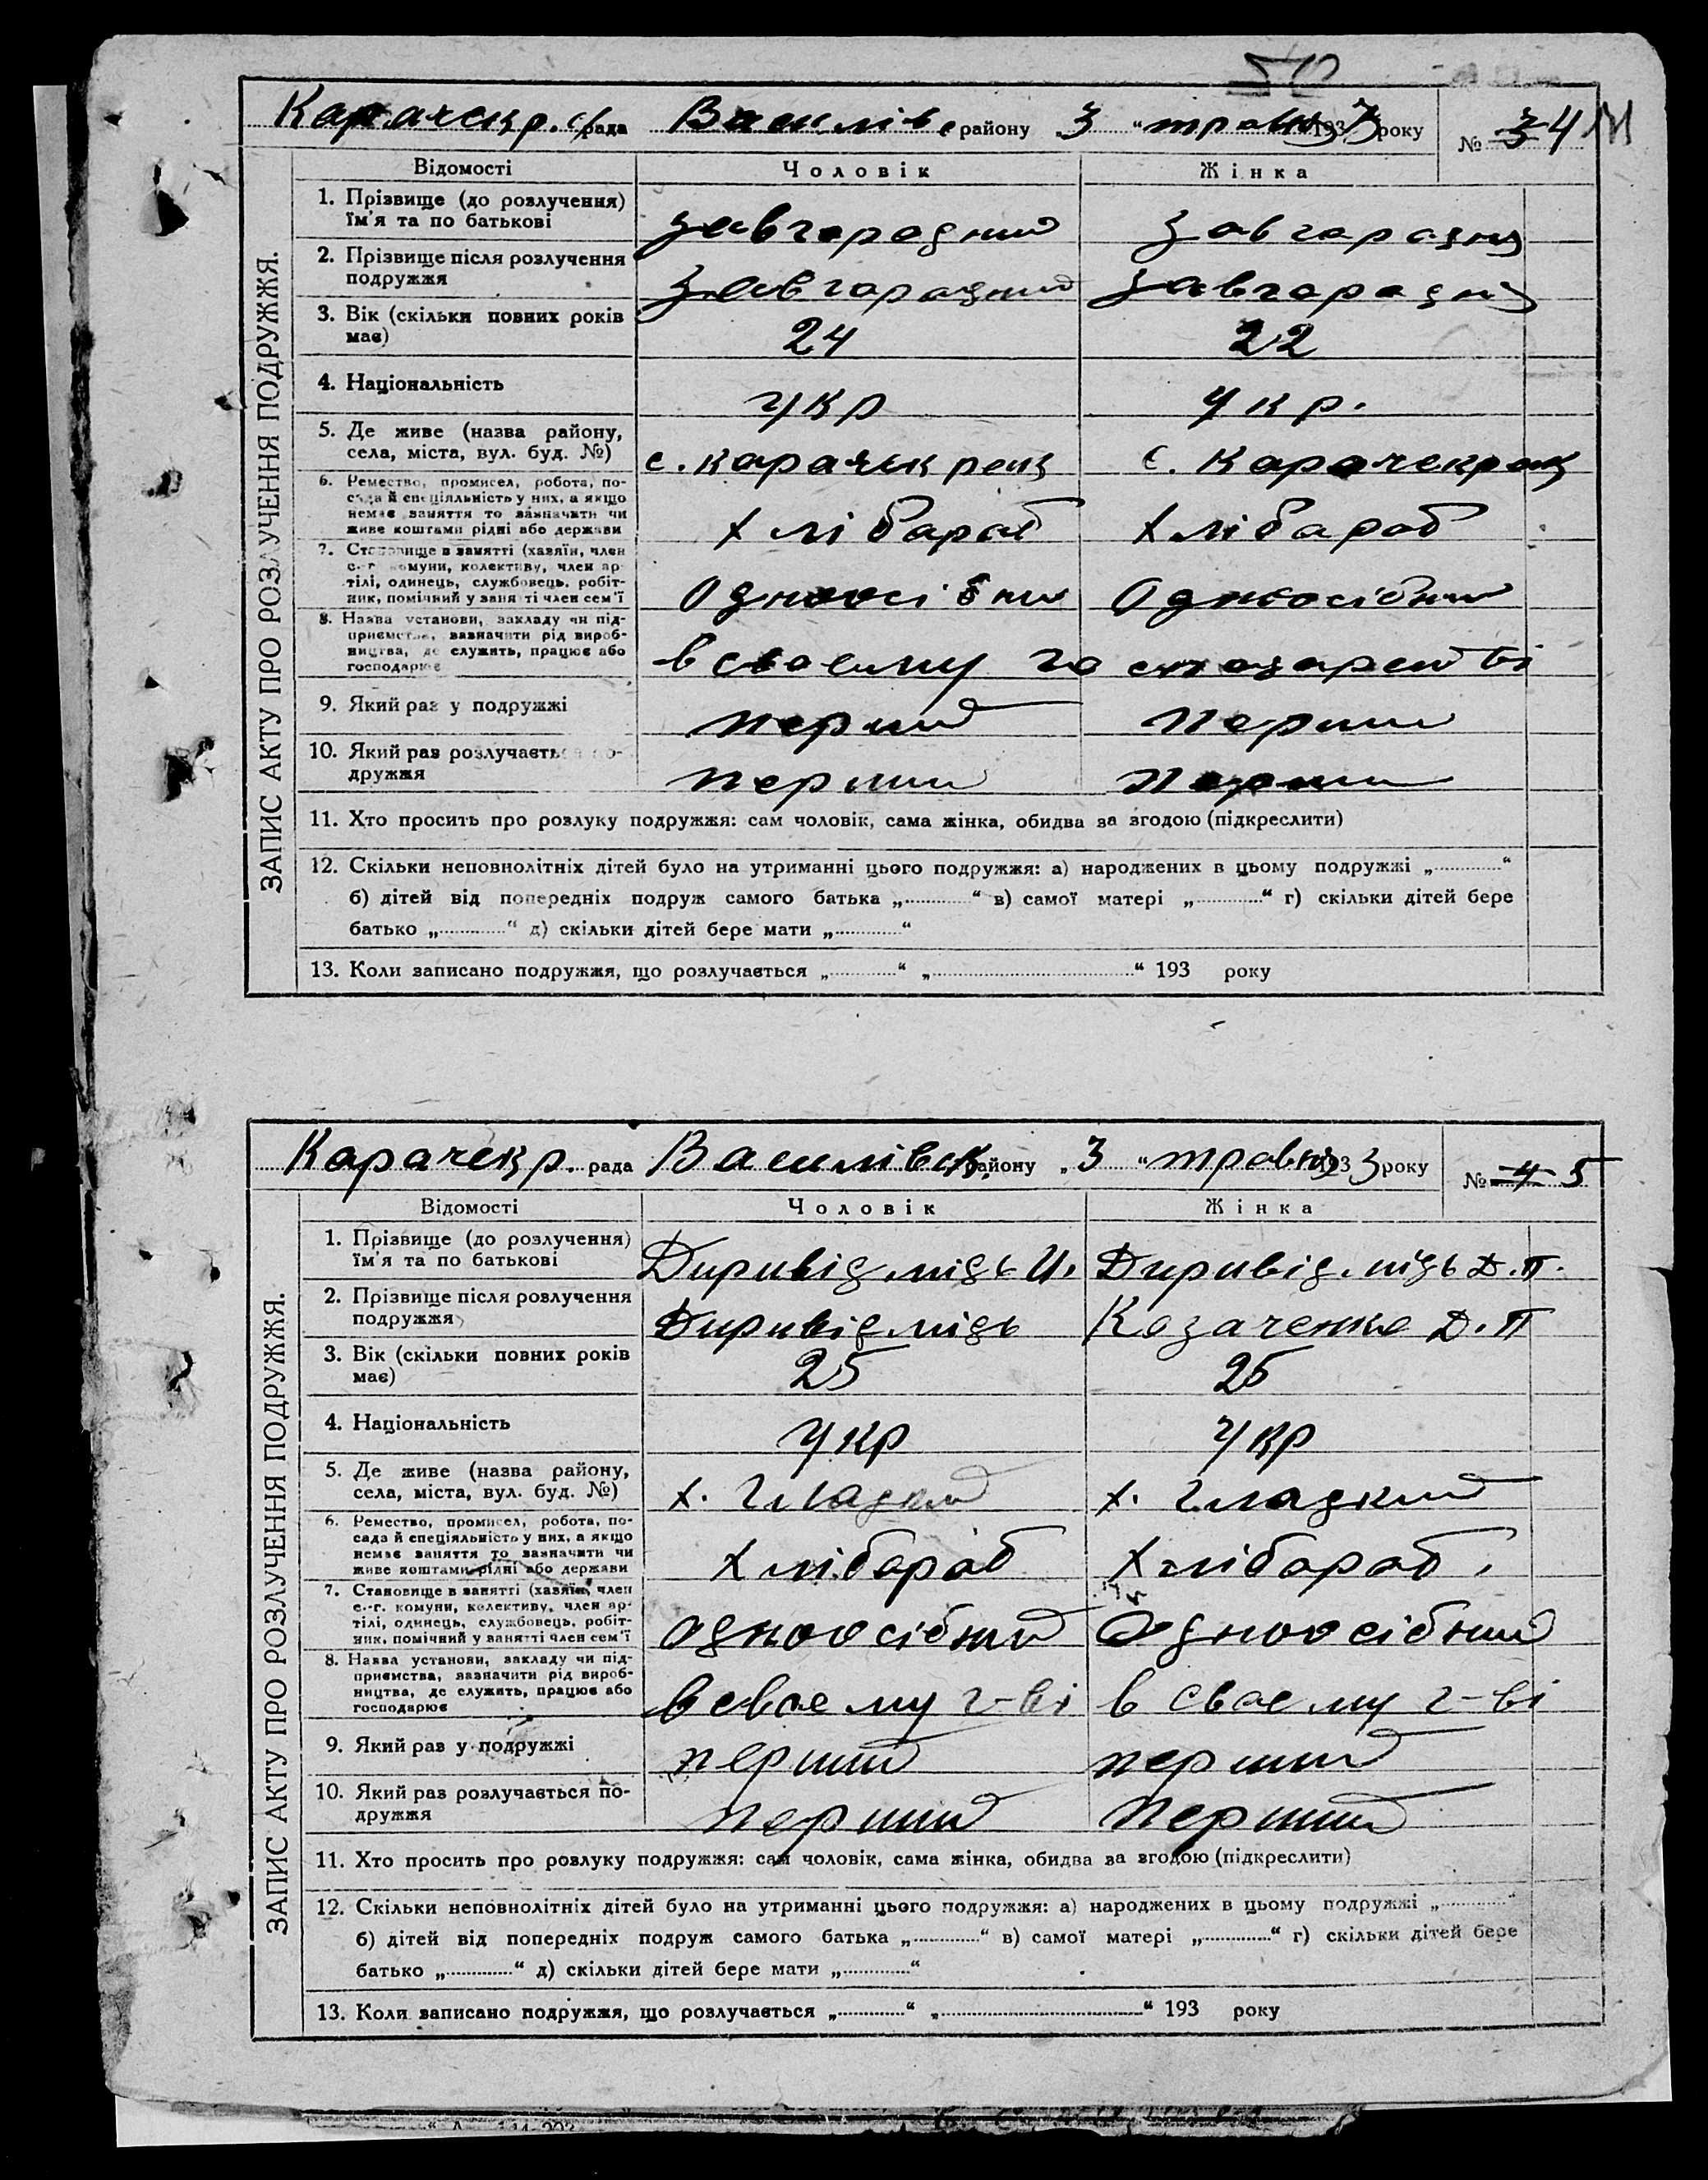 Карачекр. с/рада Василів. району 3 "травня 1933 року № 3 4
Відомості Чоловік Жінка
ЗАПИС АКТУ ПРО РОЗЛУЧЕННЯ ПОДРУЖЖЯ.
1. Прізвище (до розлучення) ім'я та по батькові Завгородний Завгородня
2. Прізвище після розлучення подружжя Завгородний Завгородня
3. Вік (скільки повних років має) 24 22
4. Національність укр укр.
5. Де живе (назва району, села, міста, вул. буд. №) с. Карачекрак с. Карачекрак
6. Ремество, промисел, робота, посада й спеціяльність у них, а якщо немає заняття то зазначити чи живе коштами рідні або держави хлібароб хлібароб
7. Становище в занятті (хазяїн, член с.-г. комуни, колективу, член артілі, одинець, службовець, робітник, помічний у занятті член сем'ї одноосібний одноосібний
8. Назва установи, закладу чи підприємства, зазначити рід виробництва, де служить, працює або господарює в своему господарстві
9. Який раз у подружжі перший перший
10. Який раз розлучається подружжя перший перший
11. Хто просить про розлуку подружжя: сам чоловік, сама жінка, обидва за згодою (підкреслити)
12. Скільки неповнолітніх дітей було на утриманні цього подружжя: а) народжених в цьому подружжі „ “
б) дітей від попередніх подруж самого батька „ “ в) самої матері „ “ г) скільки дітей бере
батько „ “ д) скільки дітей бере мати „ “
13. Коли записано подружжя, що розлучається „ “ „ “ 193 року
Карачекр. рада Василівск. району „3 "травня 1933 року № 4 5
Відомості Чоловік Жінка
ЗАПИС АКТУ ПРО РОЗЛУЧЕННЯ ПОДРУЖЖЯ.
1. Прізвище (до розлучення) ім'я та по батькові Диривідмідь И. Диривідмідь Д.П.
2. Прізвище після розлучення подружжя Диривідмідь Казаченко Д.П
3. Вік (скільки повних років має) 25 25
4. Національність укр укр
5. Де живе (назва району, села, міста, вул. буд. №) х. Гладкий х. Гладкий
6. Ремество, промисел, робота, посада й спеціяльність у них, а якщо немає заняття то зазначити чи живе коштами рідні або держави хлібароб хлібароб
7. Становище в занятті (хазяїн, член с.-г. комуни, колективу, член артілі, одинець, службовець, робітник, помічний у занятті член сем'ї одноосібний одноосібний
8. Назва установи, закладу чи підприємства, зазначити рід виробництва, де служить, працює або господарює в своему г-ві в своему г-ві
9. Який раз у подружжі перший перший
10. Який раз розлучається подружжя перший перший
11. Хто просить про розлуку подружжя: сам чоловік, сама жінка, обидва за згодою (підкреслити)
12. Скільки неповнолітніх дітей було на утриманні цього подружжя: а) народжених в цьому подружжі „ “
б) дітей від попередніх подруж самого батька „ “ в) самої матері „ “ г) скільки дітей бере
батько „ “ д) скільки дітей бере мати „ “
13. Коли записано подружжя, що розлучається „ “ „ “ 193 року